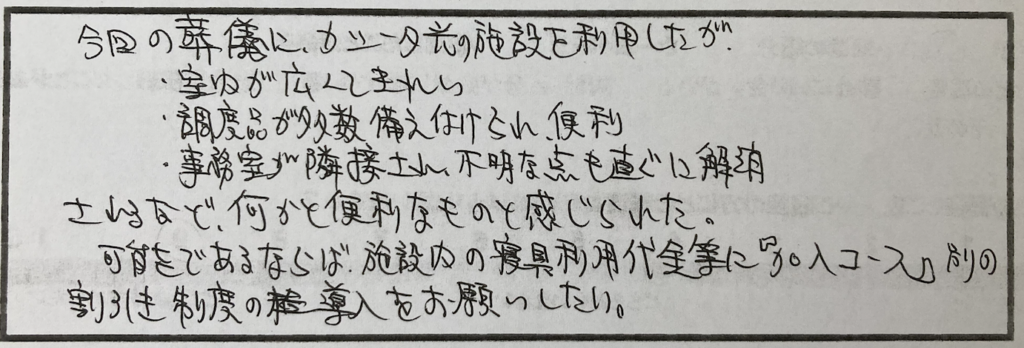 今回の葬儀に、カソータ苑の施設を利用したが、
・室内が広くきれい
・調度品が多数備え付けられ、便利
・事務室が隣接され、不明な点も直ぐに解消
されるなど、何かと便利なものと感じられた。
可能であるならば、施設内の寝具利用代金等に『加入コース』別の
割引き制度の導入をお願いしたい。